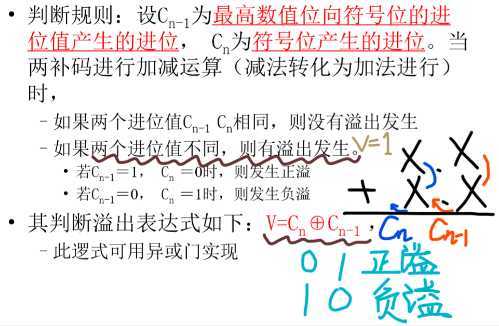 • 判断规则：设Cn-1为最高数值位向符号位的进
位值产生的进位， Cn为符号位产生的进位。当
两补码进行加减运算（减法转化为加法进行）
时，
–如果两个进位值Cn-1 Cn相同，则没有溢出发生
–如果两个进位值不同，则有溢出发生。V=1
• 若Cn-1=1， Cn =0时，则发生正溢
• 若Cn-1=0， Cn =1时，则发生负溢
X X
+ X X
• 其判断溢出表达式如下：V=Cn⊕Cn-1，
Cn Cn-1
–此逻式可用异或门实现
0 1 正溢
1 0 负溢